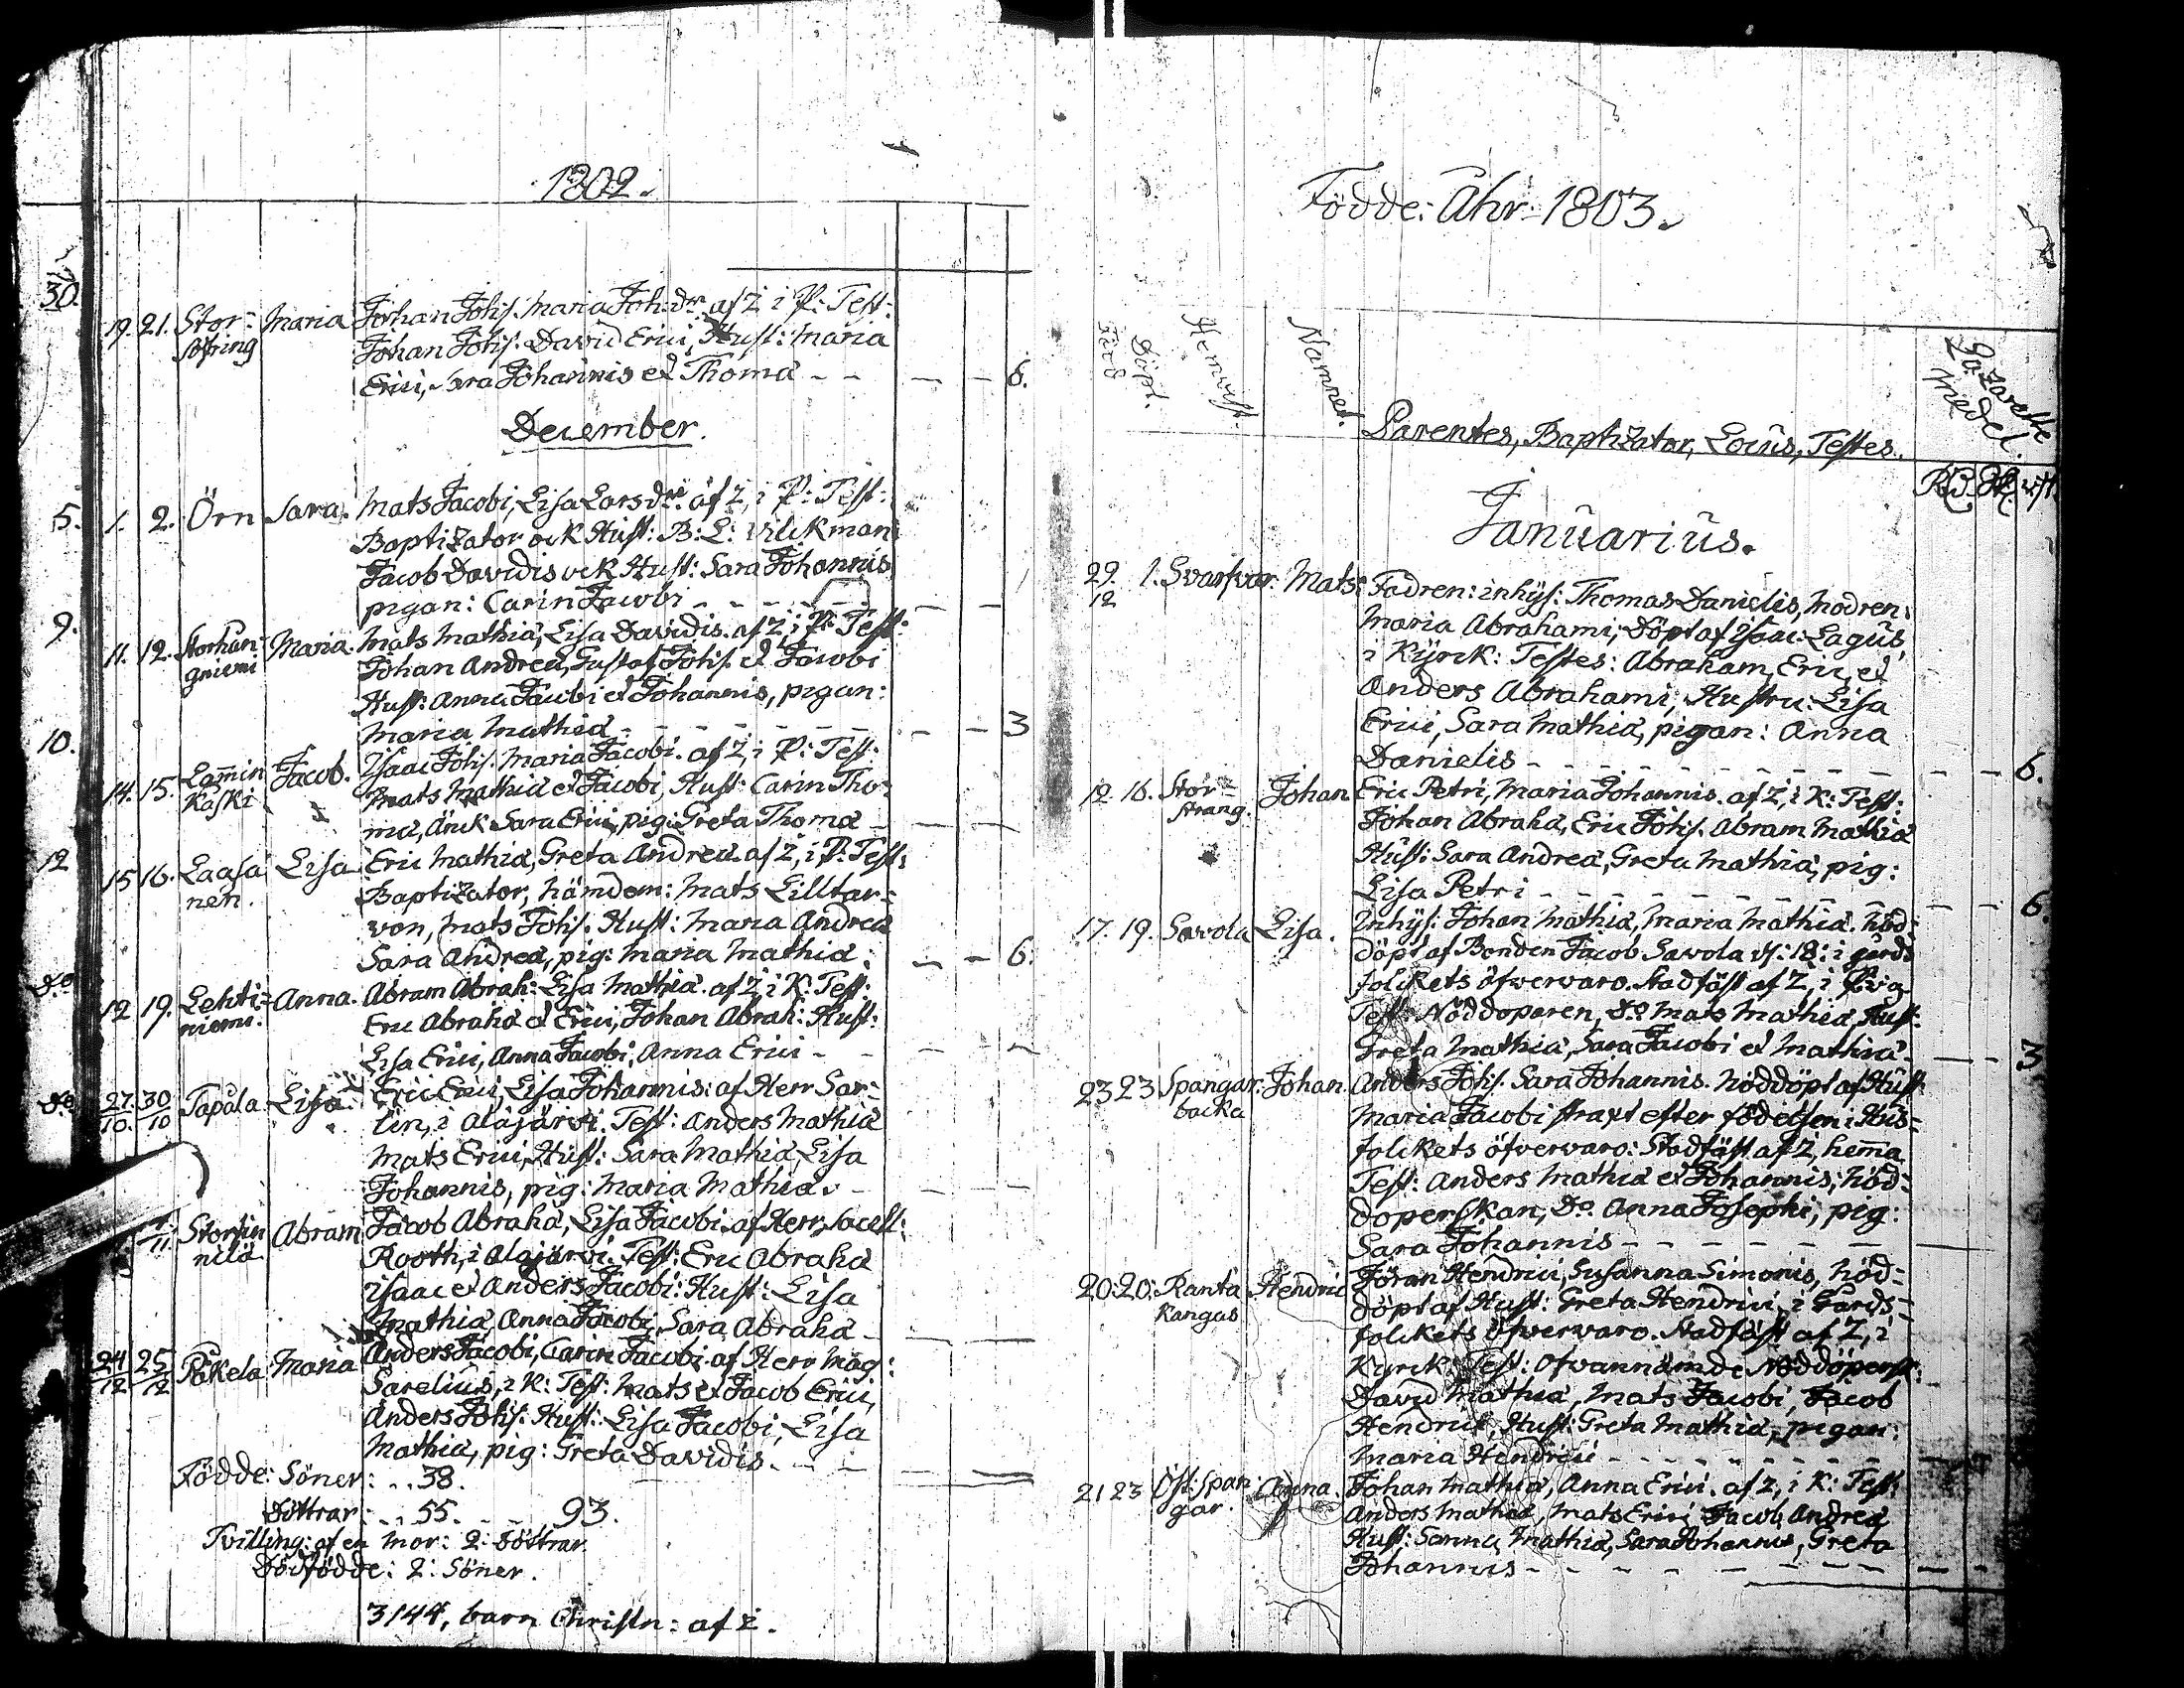 1802.
30.
19. 21. Stor= Maria Johan Johs. Maria Joh:dr. af Z i P: Test:
söfring Johan Johs. David Erici, Hust: Maria
Erici, Sara Johannis et Thomæ - - - - 6.
December.
5. 1. 2. Örn Sara. Mats Jacobi, Lisa Larsdr. af Z, i P: Test:
Baptizator ock Hust: B: L: Vilckman
Jacob Davidis ock Hust: Sara Johannis
pigan: Carin Jacobi - - - -
9. 11. 12. Storhan= Maria. Mats Mathiæ, Lisa Davidis. af Z, i P: Test:
gniemi Johan Andreæ, Gustaf Johs. et Jacobi
Hust: Anna Jacobi et Johannis, pigan:
Maria Mathiæ - - - - 3
10. 14. 15. Lamin Jacob. Isaac Johs. Maria Jacobi. af Z, i P: Test:
kaski Mats Mathiæ et Jacobi, Hust: Carin Tho=
mæ, Änck Sara Erici, pig: Greta Thomæ - - -
12 15 16. Laasa Lisa Eric Mathiæ, Greta Andreæ. af Z, i P: Test:
nen. Baptizator, Nämdem: Mats Lilltar=
von, Mats Johs. Hust: Maria Andreæ
Sara Andreæ, pig: Maria Mathiæ. - - 6.
Do 12 19. Lehti= Anna. Abram Abrah: Lisa Mathiæ. af Z i K: Test:
niemi. Eric Abrahæ et Erici, Johan Abrah: Hust:
Lisa Erici, Anna Jacobi, Anna Erici - - - -
Do 27. 30 Tapala Lisa. Eric Erici, Lisa Johannis: af Herr Sar=
10. 10 lin, i Alajärvi. Test: Anders Mathiæ
Mats Erici, Hust: Sara Mathiæ, Lisa
Johannis, pig: Maria Mathiæ. - - -
11. Storfin Abram Jacob Abrahæ, Lisa Jacobi. af Herr Sacell:
nilä Rooth, i Alajärvi. Test: Eric Abrahæ
Isaac et Anders Jacobi: Hust: Lisa
Mathiæ, Anna Jacobi, Sara Abrahæ - - -
24 25 Påkela Maria Anders Jacobi, Carin Jacobi. af Herr Mag:
12 12 Sarelius, i K: Test: Mats et Jacob Erici,
Anders Johs. Hust: Lisa Jacobi, Lisa
Mathiæ, pig: Greta Davidis. - -
Födde: Söner: . . 38.
Döttrar: . . 55. - - 93.
Tvilling: af en mor: 2: Döttrar.
Dödfödde: 2: Söner.
3144, barn Christn: af Z.
Födde: Åhr: 1803.
Född Döpt. Hemvist. Namnet. Parentes, Baptizator, Locus, Testes. Lazaretts
medel.
Januarius.
29. 1. Svartvar: Mats: Fadren: inhys: Thomas Danielis, Modren:
12 Maria Abrahami; Döpt af Isaac: Lagus,
i Kijrck: Testes: Abraham, Eric, et
Anders Abrahami, Hustru: Lisa
Erici, Sara Mathiæ, pigan: Anna
Danielis - - - - 6.
12 16. Stor= Johan Eric Petri, Maria Johannis. af Z, i K: Test:
strang. Johan Abrahæ, Eric Johs. Abram Mathiæ
Hust: Sara Andreæ, Greta Mathiæ, pig:
Lisa Petri - - - - 6.
17. 19. Savola Lisa. Inhys: Johan Mathiæ, Maria Mathiæ. Nöd=
döpt af Bonden Jacob Savola d: 18: i gårds
folckets öfwerwaro. Stadfäst af Z, i
Test: Nöddoparen, Do Mats Mathiæ, Hust:
Greta Mathiæ, Sara Jacobi et Mathiæ - - - 3
23 23 Spangar= Johan. Anders Johs. Sara Johannis. Nöddöpt af Hust:
backa Maria Jacobi straxt efter födelsen i Hus=
folckets öfvervaro: Stadfäst af Z, hemma
Test: Anders Mathiæ et Johannis; Nöd=
doperskan, Do. Anna Josephi, pig:
Sara Johannis - - - -
20. 20. Ranta Hendric Jöran Hendrici, Susanna Simonis, Nöd=
kangas döpt af Hust: Greta Hendrici, i Gårds=
folckets öfwerwaro. Stadfäst af Z, i
Kijrck: Test: Ofwannämde Nöddöperst:
David Mathiæ, Mats Jacobi, Jacob
Hendrici, Hust: Greta Mathiæ, pigan:
Maria Hendrici - - - -
21 23 Öst:span= Anna. Johan Mathiæ, Anna Erici. af Z, i K: Test:
gar. Anders Mathiæ, Mats Erici Jacob Andreæ
Hust: Sanna Mathiæ, Sara Johannis, Greta
Johannis - - - -